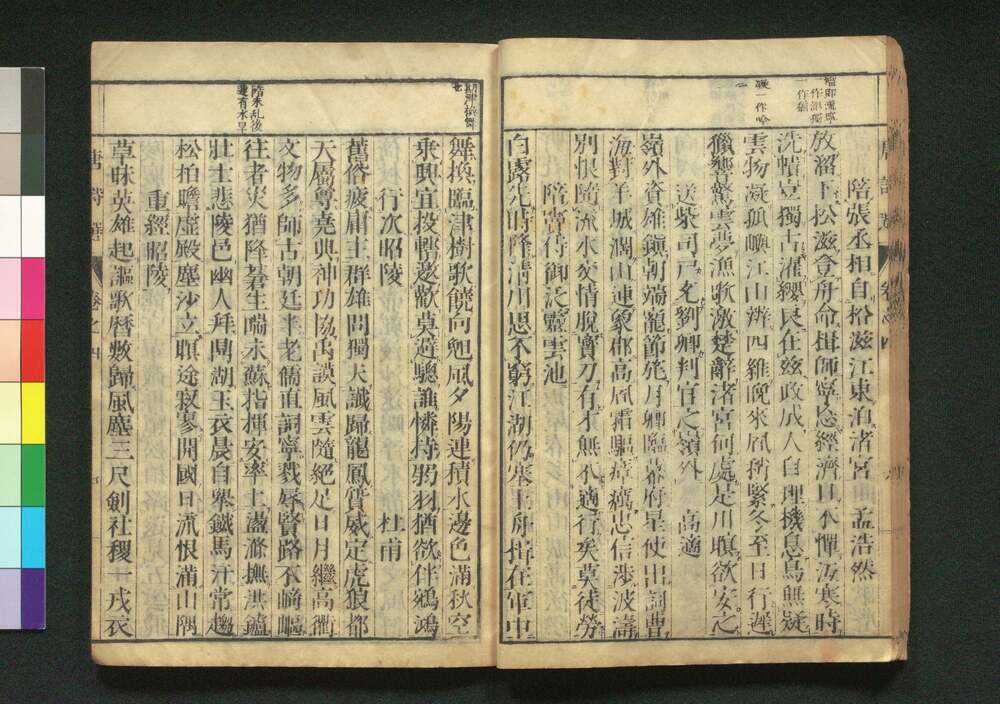 陪張丞相自松滋江東泊渚宮 孟浩然
放溜下松滋登舟命楫師寧忘經濟日不憚沍寒時
洗幘豈獨古濯纓良在茲政成人自理機息鳥無疑
雲物凝孤嶼江山辨四維晚來風稍緊冬至日行遲
獵響驚雲夢漁歌激楚辭渚宮何處是川暝欲安之
送柴司戶充劉卿判官之嶺外 高適
嶺外資雄鎮朝端寵節旄月卿臨幕府星使出詞曹
海對羊城濶山連象郡高風霜驅瘴癘忠信涉波濤
別恨隨流水交情脫寶刀有才無不適行矣莫徒勞
陪竇侍御泛靈雲池
白露先時降清川思不窮江湖仍塞上舟楫在軍中
舞換臨津樹歌饒向晚風夕陽連積水邊色滿秋空
乘興宜投轄邀歡莫避驄誰憐持弱羽猶欲伴鵷鴻
行次昭陵 杜甫
隋末乱後
還有水旱
舊俗疲庸主群雄問獨夫讖歸龍鳳質威定虎狼都
天屬尊堯典神功協禹謨風雲隨絕足日月繼高衢
文物多師古朝廷半老儒直詞寧戮辱賢路不崎嶇
往者災猶降蒼生喘未蘇指揮安率土盪滌撫洪鑪
壯士悲陵邑幽人拜鼎湖玉衣晨自舉鐵馬汗常趨
松柏瞻虛殿塵沙立暝途寂寥開國日流恨滿山隅
重經昭陵
草昧英雄起謳歌曆數歸風塵三尺劍社稷一戎衣
唐詩選 卷之四